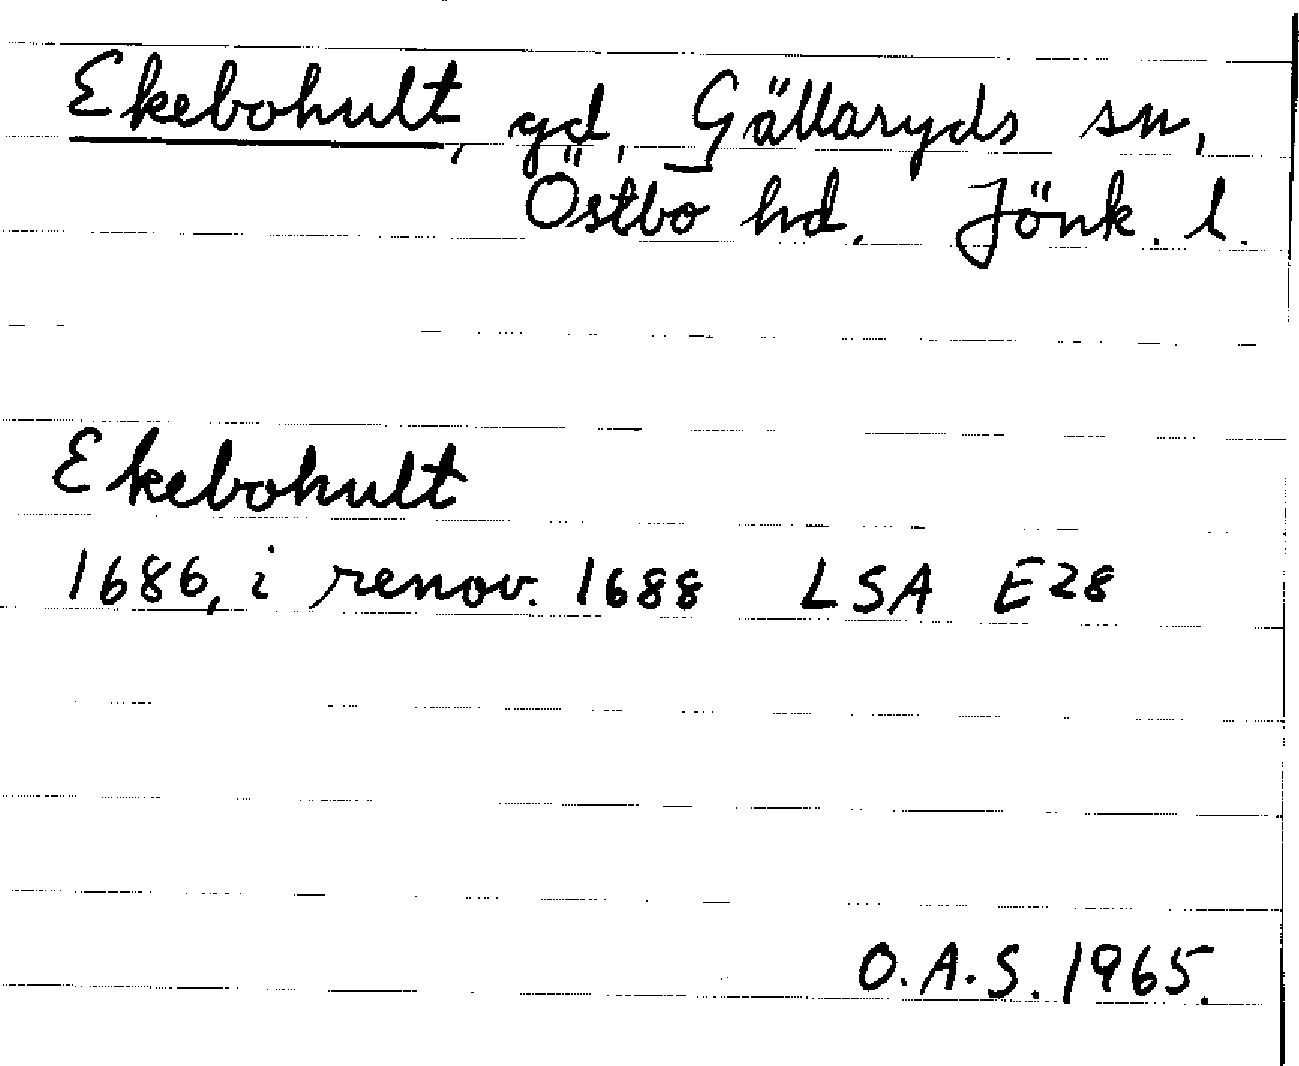 Ekebohult, gd, Gällaryds sn,
Östbo hd. Jönk. l.
Ekebohult
1686, i renov. 1688 LSA E28
O.A.S. 1965.